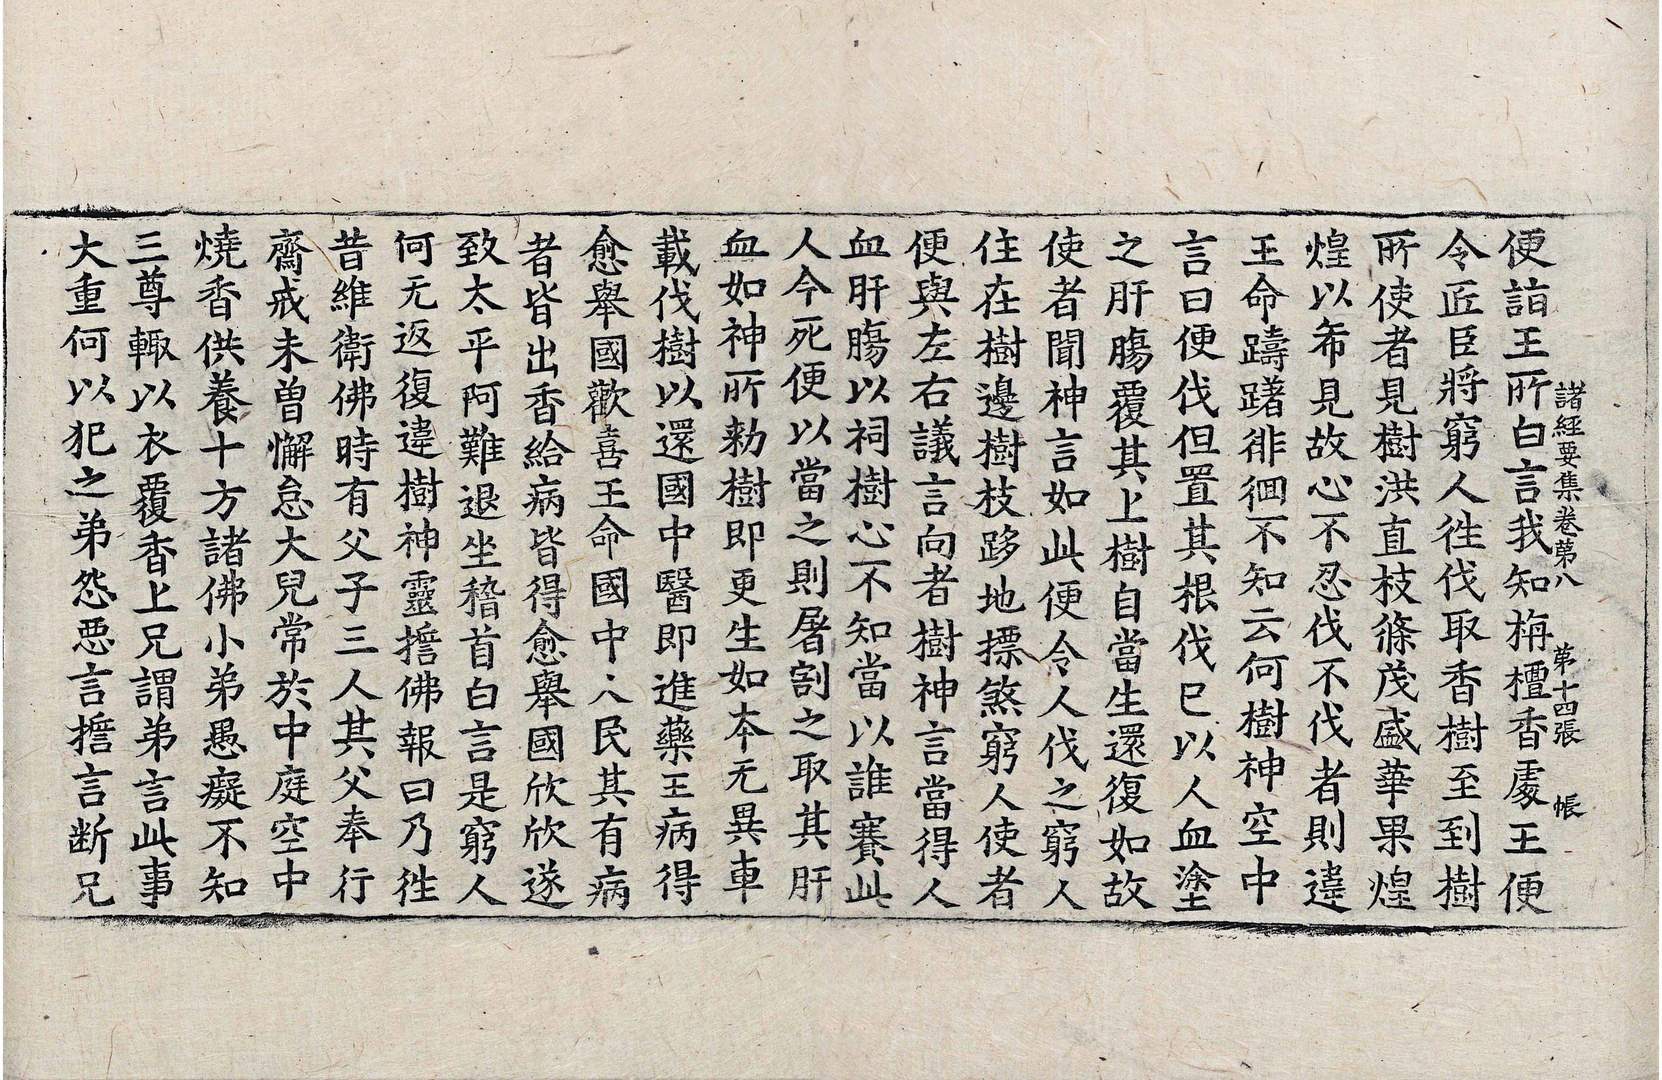 諸經要集卷第八　第十四張　帳
便詣王所白言我知栴檀香處王便
令匠臣將窮人徃伐取香樹至到樹
所使者見樹洪直枝條茂盛華果煌
煌以希見故心不忍伐不伐者則違
王命躊躇徘徊不知云何樹神空中
言曰便伐但置其根伐已以人血塗
之肝膓覆其上樹自當生還復如故
使者聞神言如此便令人伐之窮人
住在樹邊樹枝跢地摽煞窮人使者
便與左右議言向者樹神言當得人
血肝膓以祠樹心不知當以誰賽此
人今死便以當之則屠割之取其肝
血如神所勑樹即更生如本无異車
載伐樹以還國中醫即進藥王病得
愈舉國歡喜王命國中人民其有病
者皆出香給病皆得愈舉國欣欣遂
致太平阿難退坐稽首白言是窮人
何无返復違樹神靈誓佛報曰乃徃
昔維衛佛時有父子三人其父奉行
齋戒未曾懈怠大兒常於中庭空中
燒香供養十方諸佛小弟愚癡不知
三尊輙以衣覆香上兄謂弟言此事
大重何以犯之弟怨惡言誓言断兄